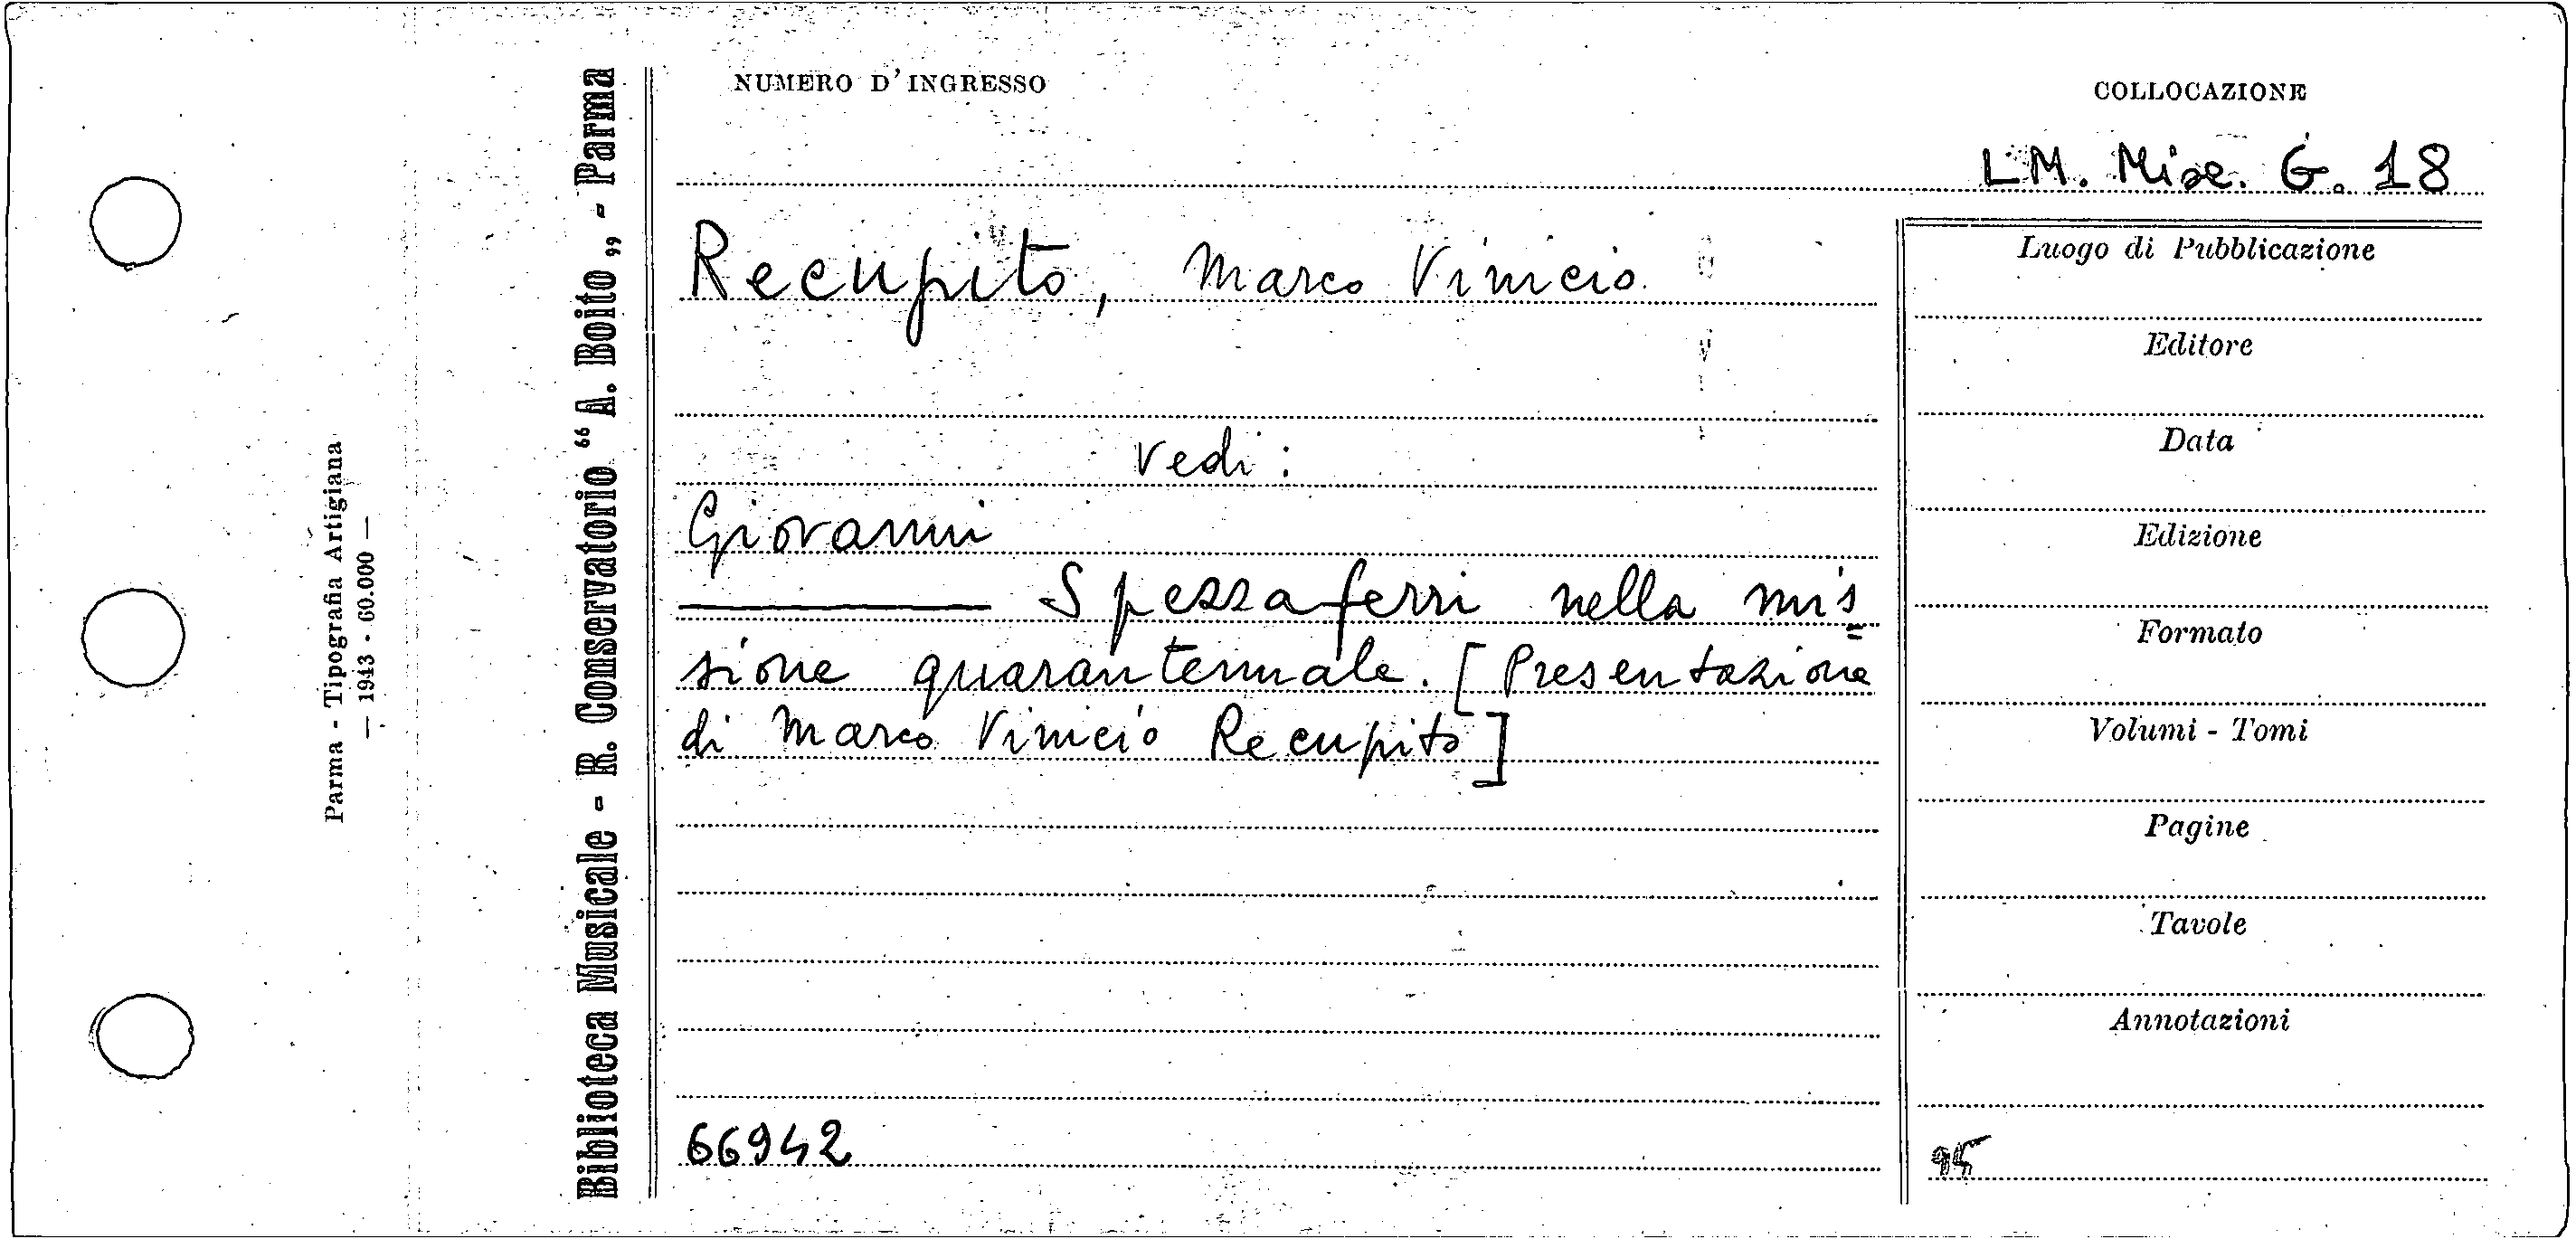 NUMERO D'INGRESSO
COLLOCAZIONE
LM. Misc. G. 18
Recupito, Marco Vinicio
vedi:
Giovanni
Spezzaferri nella mis=
sione quarantennale. [Presentazione
di Marco Vinicio Recupito]
66942
Luogo di Pubblicazione
Editore
Data
Edizione
Formato
Volumi - Tomi
Pagine
Tavole
Annotazioni
95
Biblioteca Musicale - R. Conservatorio “A. Boito„ - Parma
Parma - Tipografia Artigiana
— 1943 - 60.000 —